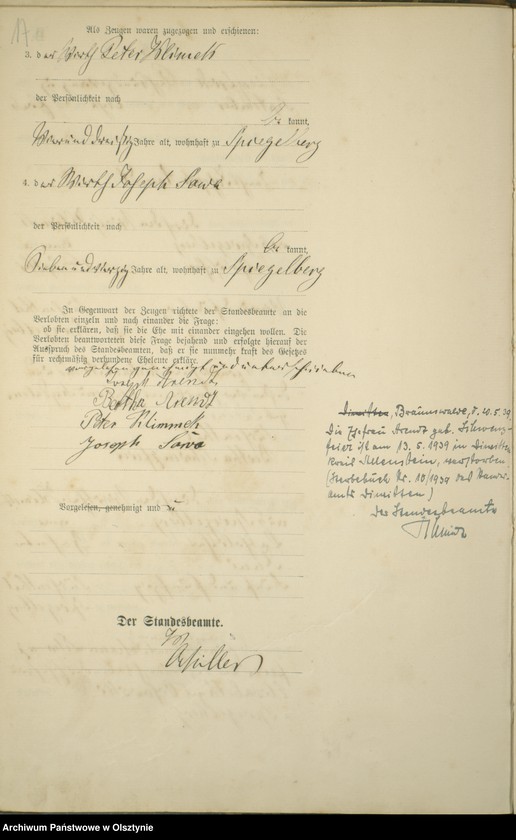 17
Als Zeugen waren zugezogen und erschienen:
3. der Wirth Peter Klimek
der Persönlichkeit nach
be kannt,
Vierunddreißig Jahre alt, wohnhaft zu Spiegelberg
4. der Wirth Joseph Sawa
der Persönlichkeit nach
be kannt,
Siebenundvierzig Jahre alt, wohnhaft zu Spiegelberg
In Gegenwart der Zeugen richtete der Standesbeamte an die
Verlobten einzeln und nach einander die Frage:
ob sie erklären, daß sie die Ehe mit einander eingehen wollen. Die
Verlobten beantworteten diese Frage bejahend und erfolgte hierauf der
Ausspruch des Standesbeamten, daß er sie nunmehr kraft des Gesetzes
für rechtmäßig verbundene Eheleute erkläre.
vorgelesen genehmigt und unterschrieben
Joseph Arendt
Bertha Arendt
Peter Klimmek
Joseph Sawa
Dimitten, Braunswalde, d. 20.5.39
Die Ehefrau Arendt geb.
ist am 13.5.1939 in Dimitten
Kreis Allenstein, verstorben.
(Sterbebuch Nr. 10/1939 des Standes-
amts Dimitten)
Der Standesbeamte
Vorgelesen, genehmigt und u
Der Standesbeamte.
Müller
Archiwum Państwowe w Olsztynie